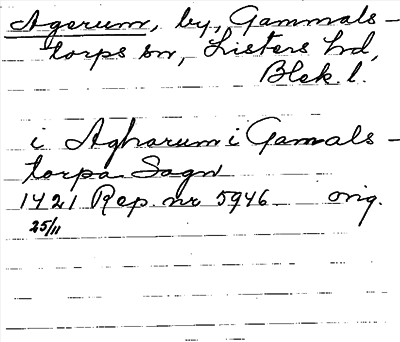 Agerum, by, Gammals-
torps sn, Listers hd,
Blek. l.
i Agharum i Gamals-
torpa Sogn
1421 Rep. nr 5946 orig.
25/11